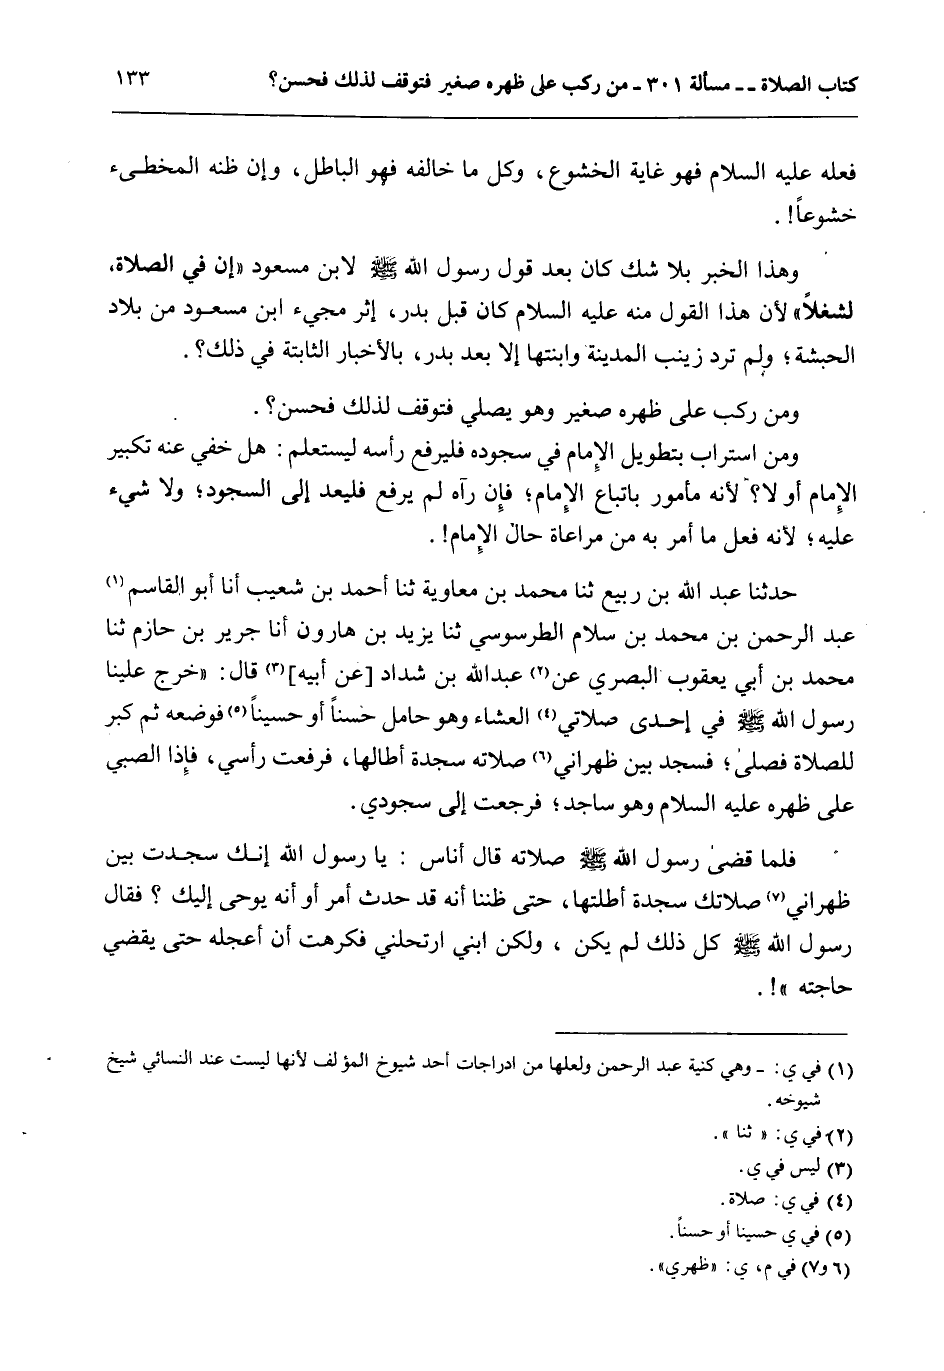 كتاب الصلاة ـ ـ مسألة ٣٠١ ـ من ركب على ظهره صغير فتوقف لذلك فحسن؟ ١٣٣
فعله عليه السلام فهو غاية الخشوع، وكل ما خالفه فهو الباطل، وإن ظنه المخطىء
خشوعاً! .
وهذا الخبر بلا شك كان بعد قول رسول الله ﷺ لابن مسعود «إن في الصلاة،
لشغلاً» لأن هذا القول منه عليه السلام كان قبل بدر، إثر مجيء ابن مسعود من بلاد
الحبشة؛ ولم ترد زينب المدينة وابنتها إلا بعد بدر، بالأخبار الثابتة في ذلك؟ .
ومن ركب على ظهره صغير وهو يصلي فتوقف لذلك فحسن؟ .
ومن استراب بتطويل الإمام في سجوده فليرفع رأسه ليستعلم: هل خفي عنه تكبير
الإمام أو لا؟ لأنه مأمور باتباع الإمام؛ فإن رآه لم يرفع فليعد إلى السجود؛ ولا شيء
عليه؛ لأنه فعل ما أمر به من مراعاة حال الإمام! .
حدثنا عبد الله بن ربيع ثنا محمد بن معاوية ثنا أحمد بن شعيب أنا أبو القاسم(١)
عبد الرحمن بن محمد بن سلام الطرسوسي ثنا يزيد بن هارون أنا جرير بن حازم ثنا
محمد بن أبي يعقوب البصري عن(٢) عبدالله بن شداد [عن أبيه](٣) قال: «خرج علينا
رسول الله ﷺ في إحدى صلاتي(٤) العشاء وهو حامل حسناً أو حسيناً(٥) فوضعه ثم كبر
للصلاة فصلى؛ فسجد بين ظهراني(٦) صلاته سجدة أطالها، فرفعت رأسي، فإذا الصبي
على ظهره عليه السلام وهو ساجد؛ فرجعت إلى سجودي.
فلما قضى رسول الله ﷺ صلاته قال أناس : يا رسول الله إنك سجدت بين
ظهراني(٧) صلاتك سجدة أطلتها، حتى ظننا أنه قد حدث أمر أو أنه يوحى إليك ؟ فقال
رسول الله ﷺ كل ذلك لم يكن ، ولكن ابني ارتحلني فكرهت أن أعجله حتى يقضي
حاجته »! .
(١) في ي: ـ وهي كنية عبد الرحمن ولعلها من ادراجات أحد شيوخ المؤلف لأنها ليست عند النسائي شيخ
شيوخه.
(٢) في ي: « ثنا ».
(٣) ليس في ي.
(٤) في ي: صلاة.
(٥) في ي حسينا أو حسناً.
(٦ و٧) في م، ي: «ظهري».